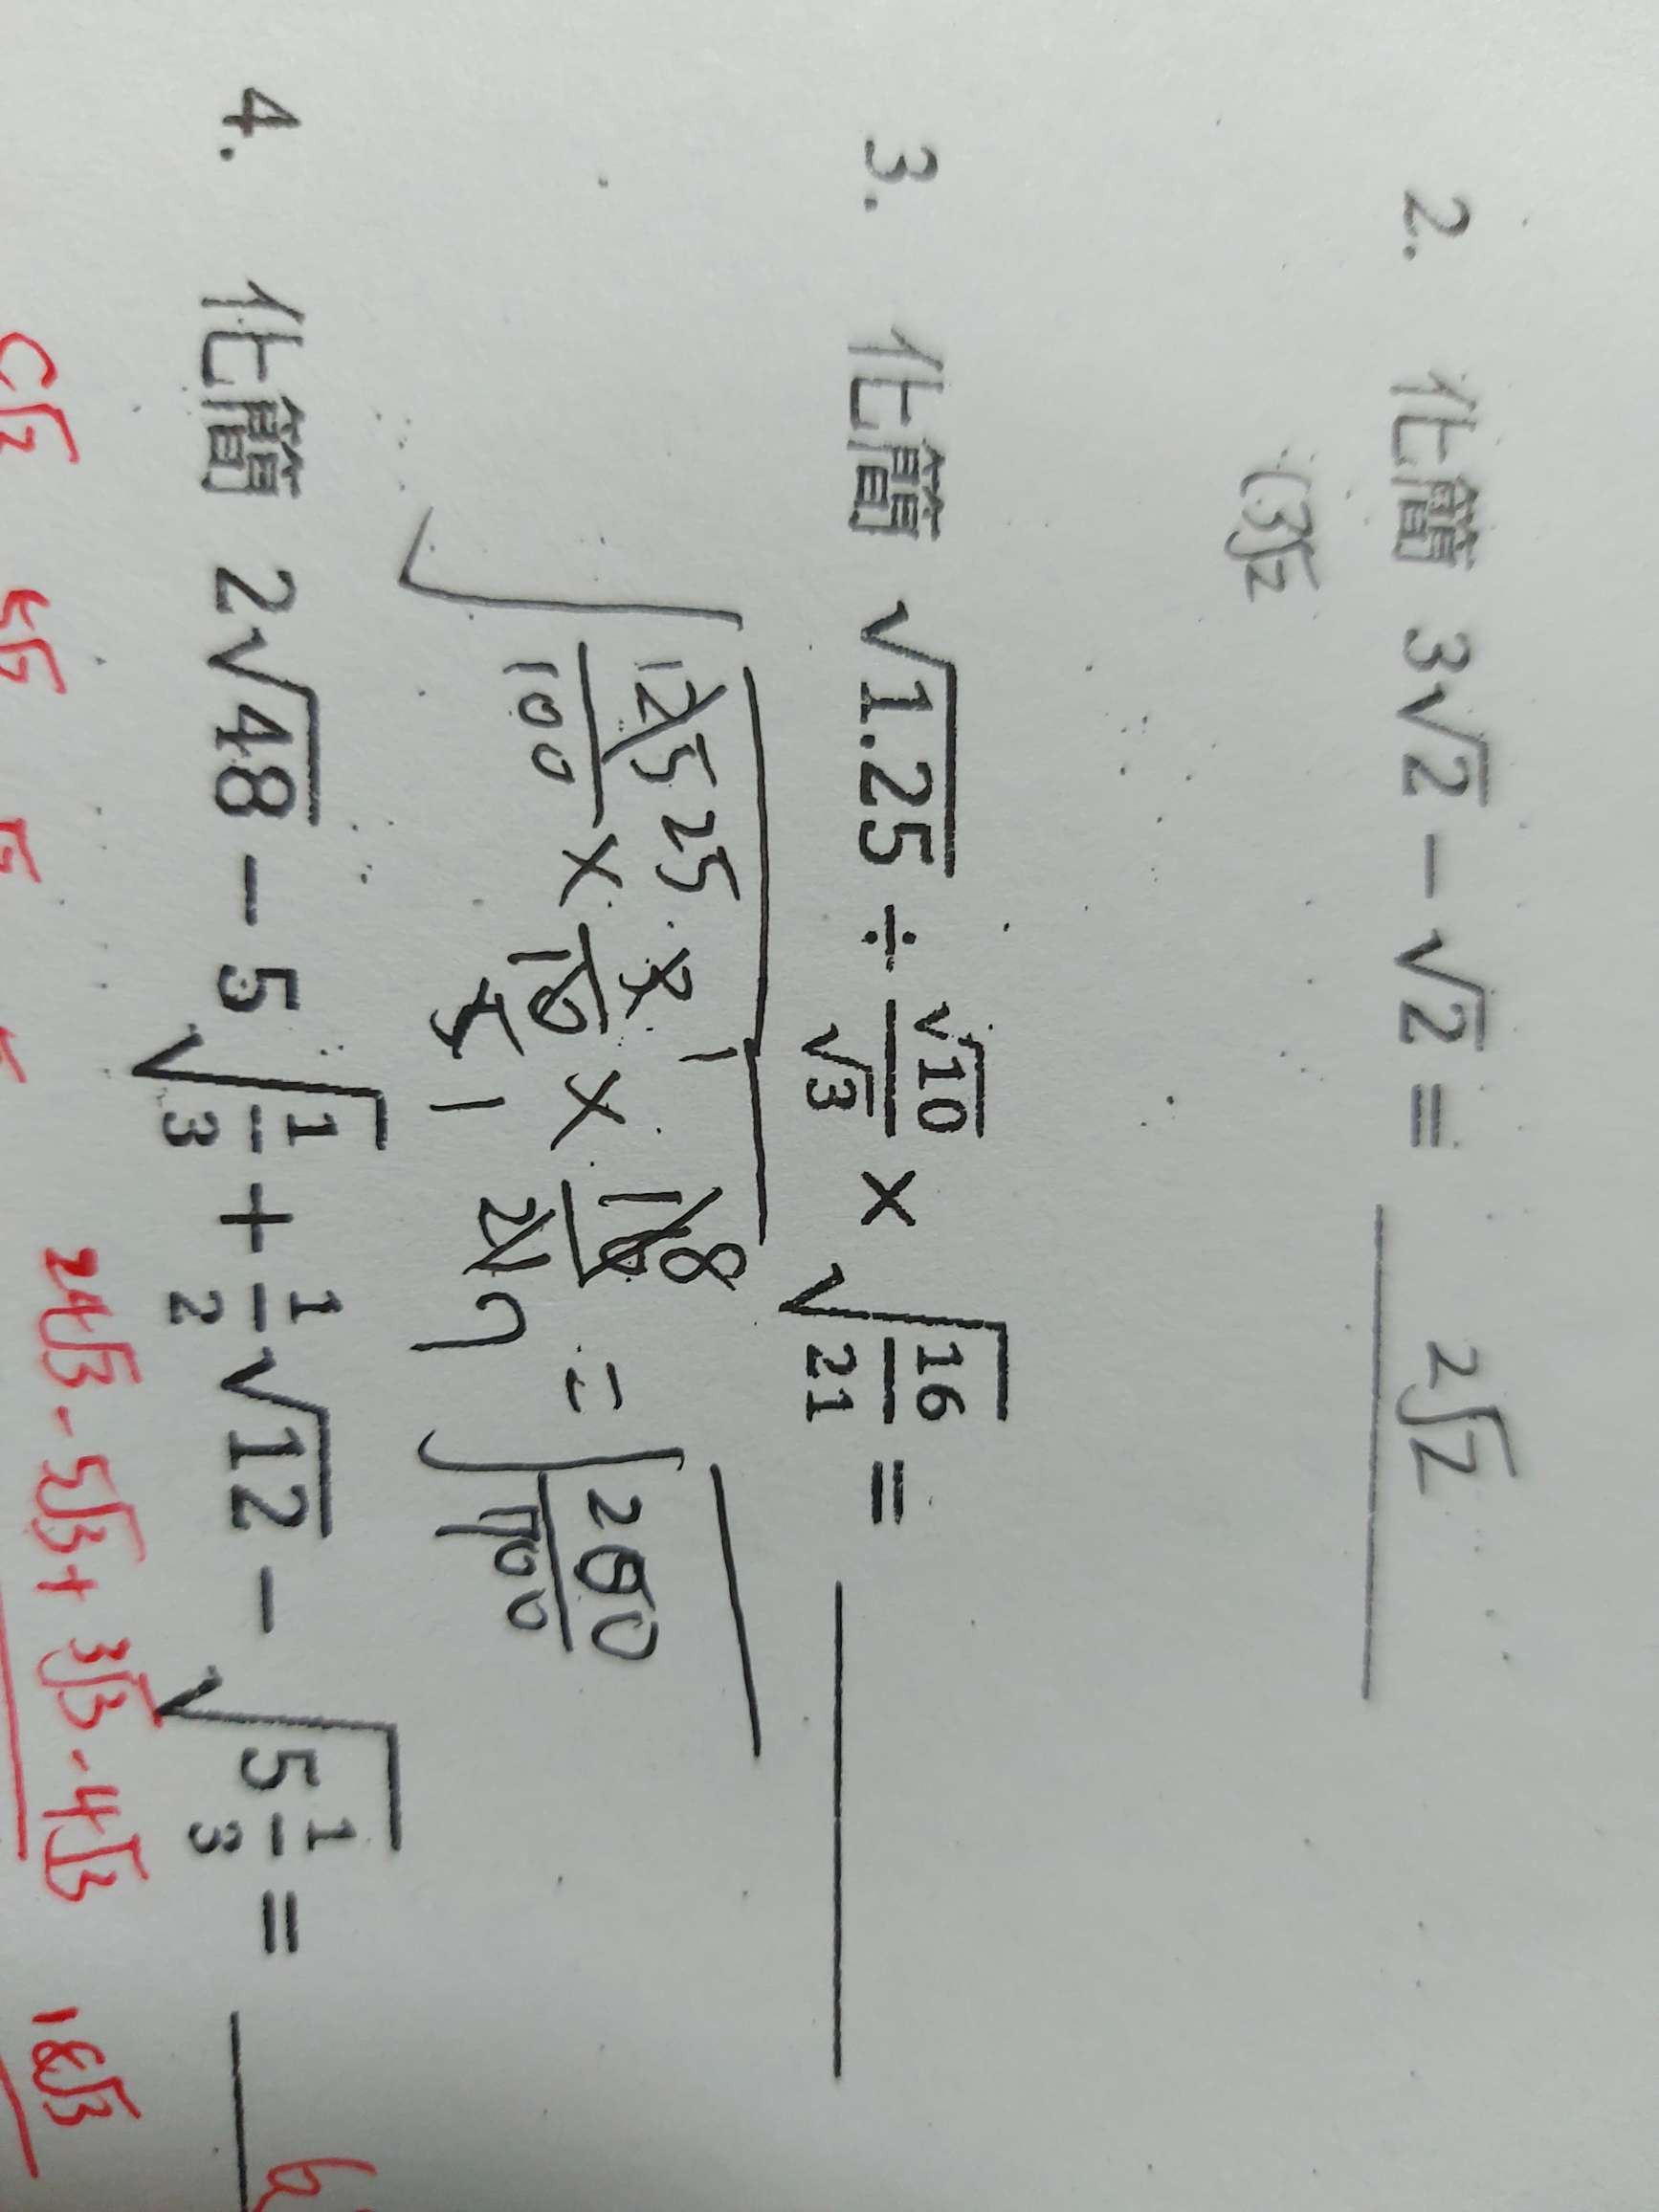 2. 化簡 3√2 − √2 = 2√2
(3√2
3. 化簡 √1.25 ÷ √10/√3 × √(16/21) =
√(125/100 × 3/10 × 16/21) = √(200/700)
25 1 8
5 1 7
4. 化簡 2√48 − 5√(1/3) + 1/2√12 − √(5 1/3) =
24√3 - 5√3 + 3√3 - 4√3 18√3
6